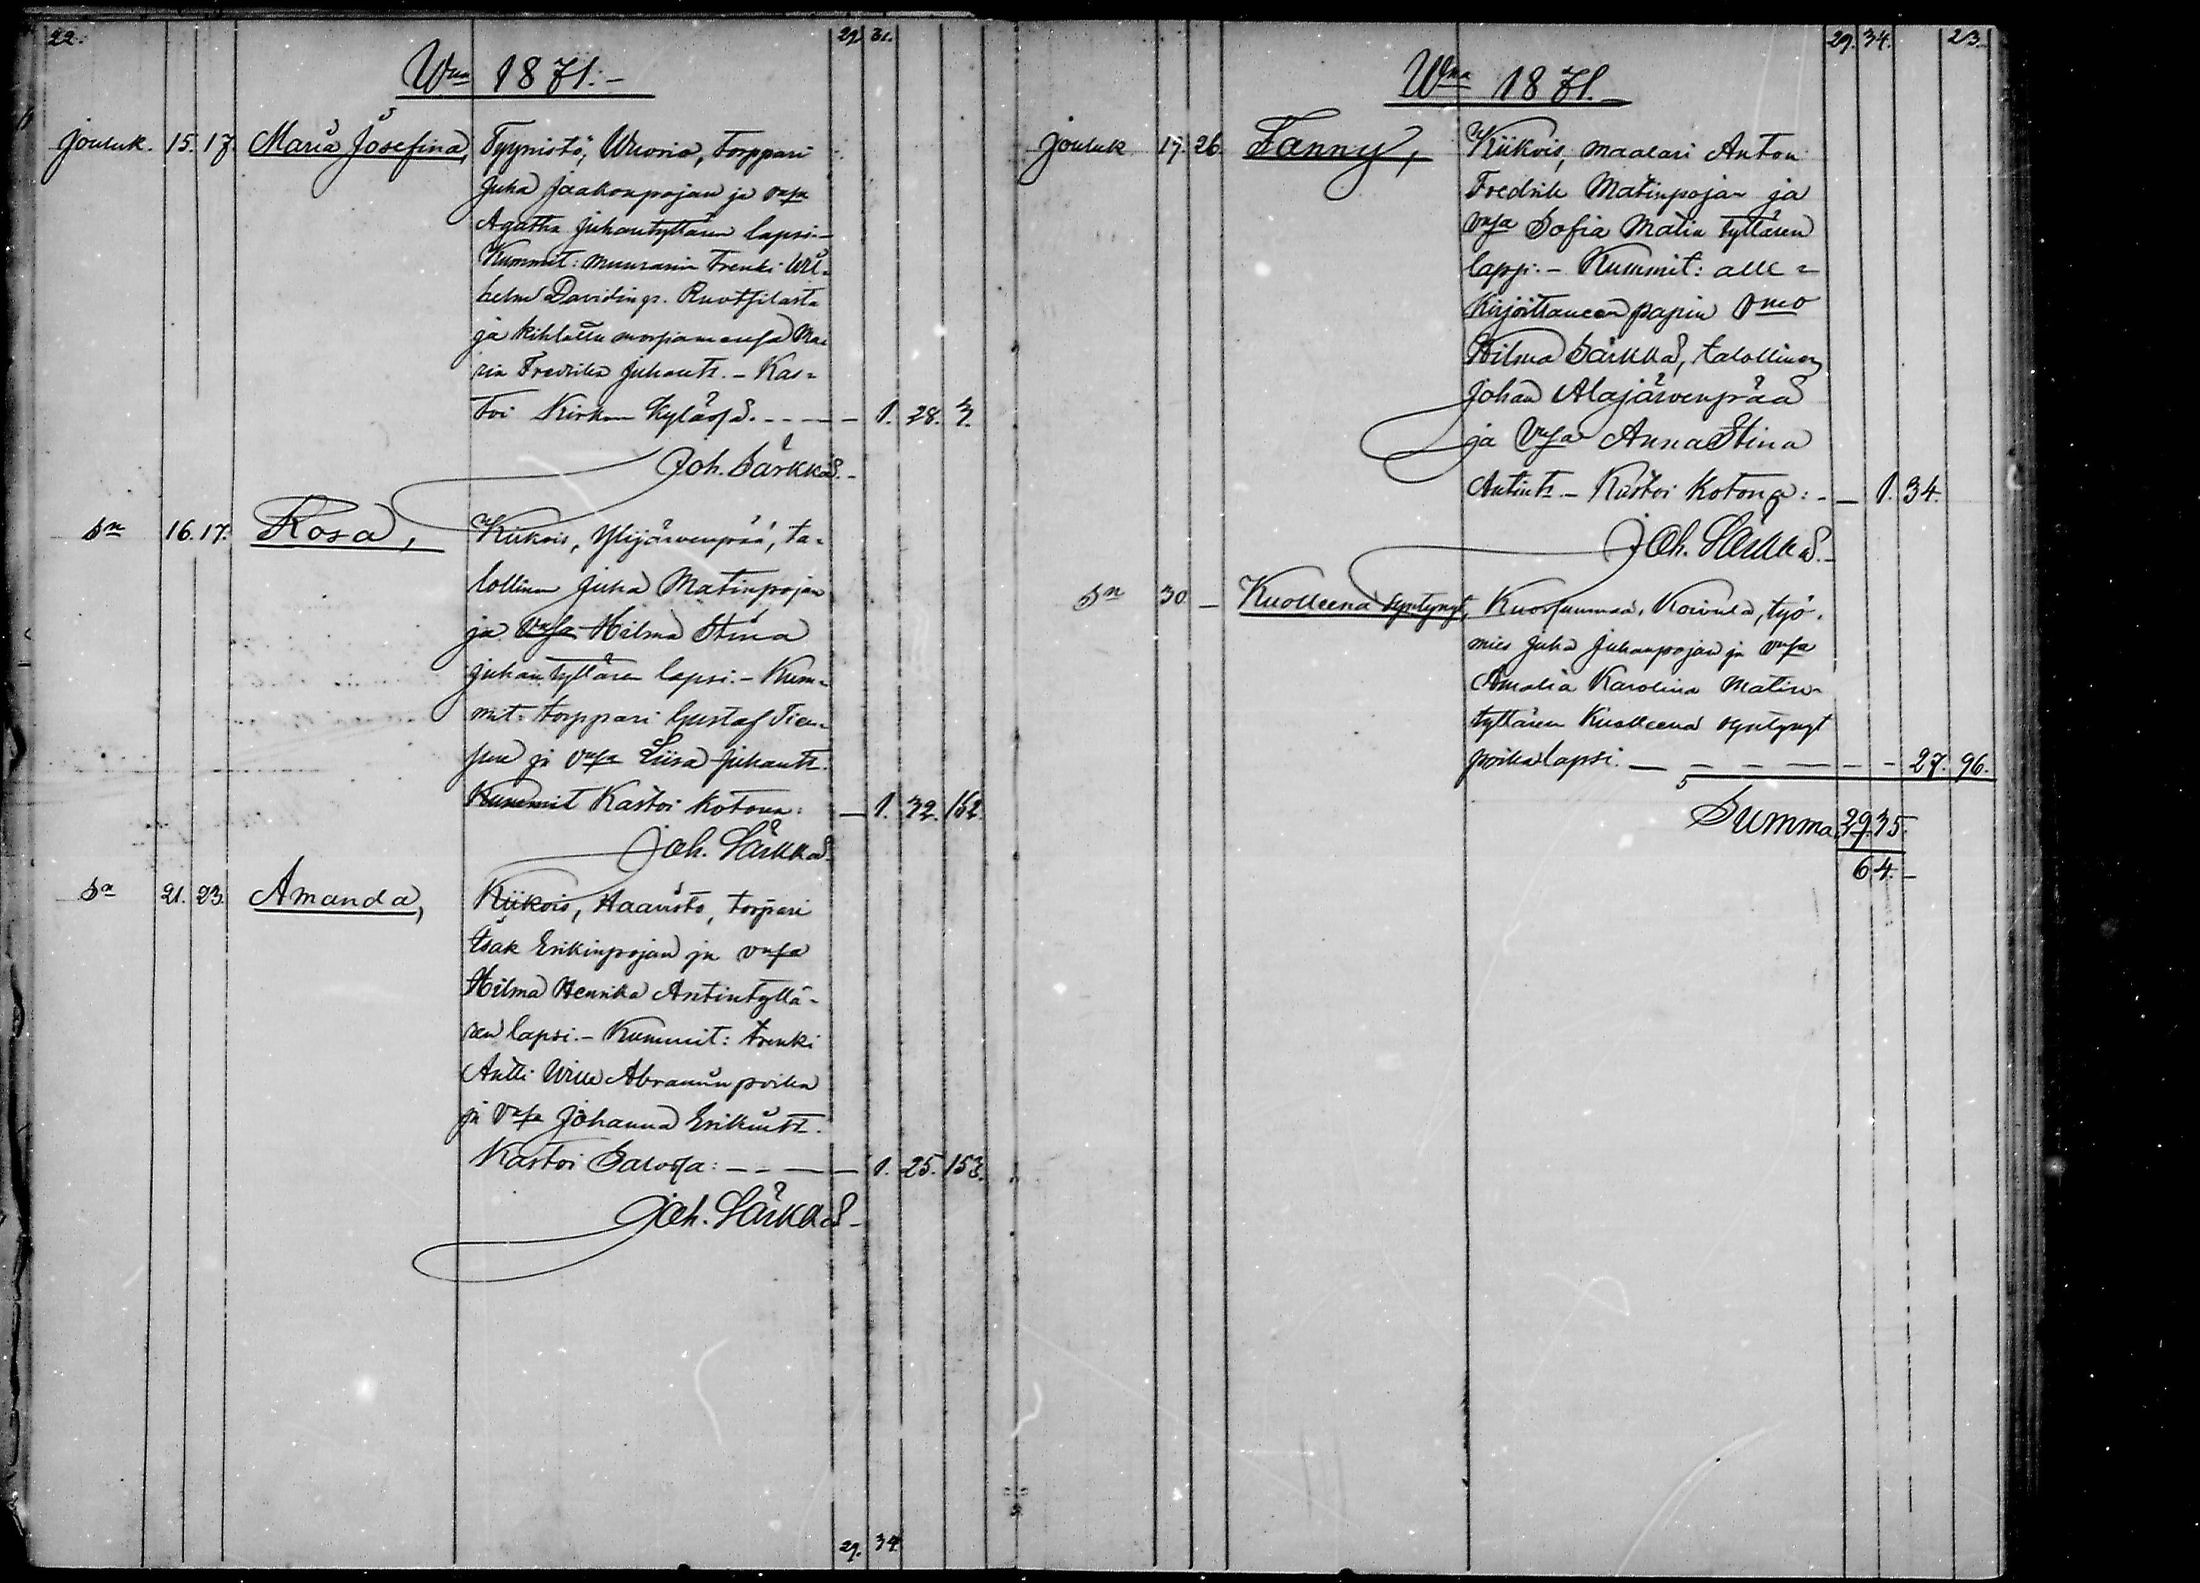 22.
29. 31.
Wna 1871.-
Jouluk. 15. 17. Maria Josefina, Tyynistö, Wuorio, torppari
Juha Jaakonpojan ja vnsa
Agatha Juhantyttären lapsi.-
Kummit: muurarin trenki Wil-
helm Davidinp. Ruotsilasta
ja kihlattu morsiamensa Ma-
ria Fredrika Juhant. - Kas-
toi Kirkon kylässä. - - - - 1. 28. 3.
Joh. Särkkä.-
Sn 16. 17. Rosa, Kiikois, Ylijärvenpää, ta-
lollisen Juha Matinpojan
ja vnsa Hilma Stina
Juhantyttären lapsi.- Kum-
mit: torppari Gustaf
ja vnsa Liisa Juhant.
Kummit Kastoi kotona: - 1. 32. 162.
Joh. Särkkä.
Sn 21. 23. Amanda, Kiikois, Haavisto, torpari
Isak Erikinpojan ja vnsa
Hilma Henrika Antintyttä-
ren lapsi.- Kummit: trenki
Antti Wille Abramin poika
ja vnsa Johanna Erikint.
Kastoi Salossa: - - - 1. 25. 153.
Joh. Särkkä-
29. 34.
29. 34. 23.
Wna 1871.-
Jouluk 17. 26. Fanny, Kiikois, maalari Anton
Fredrik Matinpojan ja
vnsa Sofia Matin tyttären
lapsi.- Kummit: alle-
kirjoittaneen papin vmo
Hilma Särkkä, talollinen
Johan Alajärvenpää
ja vnsa Anna Stina
Antint. - Kastoi kotona: - - 1. 34.
Joh. Särkkä.-
Sn 30 - Kuolleena syntynyt, Kuorsuumaa, Koivula, työ-
mies Juha Juhanpojan ja vnsa
Amalia Karolina Matin-
tyttären Kuolleena syntynyt
poikalapsi. - - - - - 27. 96.
Summa 29. 35.
64.-